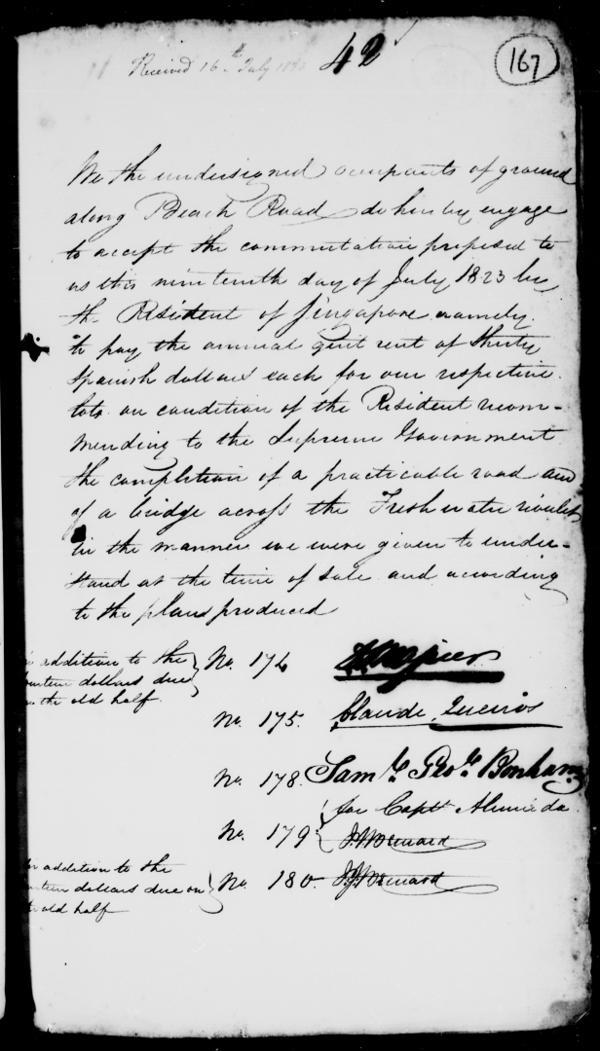 Received 16th July
42
167
We the undersigned occupants of ground
along Beach Road do hereby engage
to accept the commutation proposed to
us this nineteenth day of July 1823 by
the Resident of Singapore namely
to pay the annual quit rent of thirty
Spanish dollars each for our respective
lots on condition of the Resident recom-
mending to the Supreme Government
the completion of a practicable road and
of a bridge across the Freshwater rivulet
in the manner we were given to under-
stand at the time of sale and according
to the plans produced
addition to the
dollars due
the old half.
No. 174
No. 175. Claude Queiros
No. 178. Saml. Geo. Bonham
for Captn Almeida
No. 179 Bernard
addition to the
dollars due on
old half
No. 180. Bernard